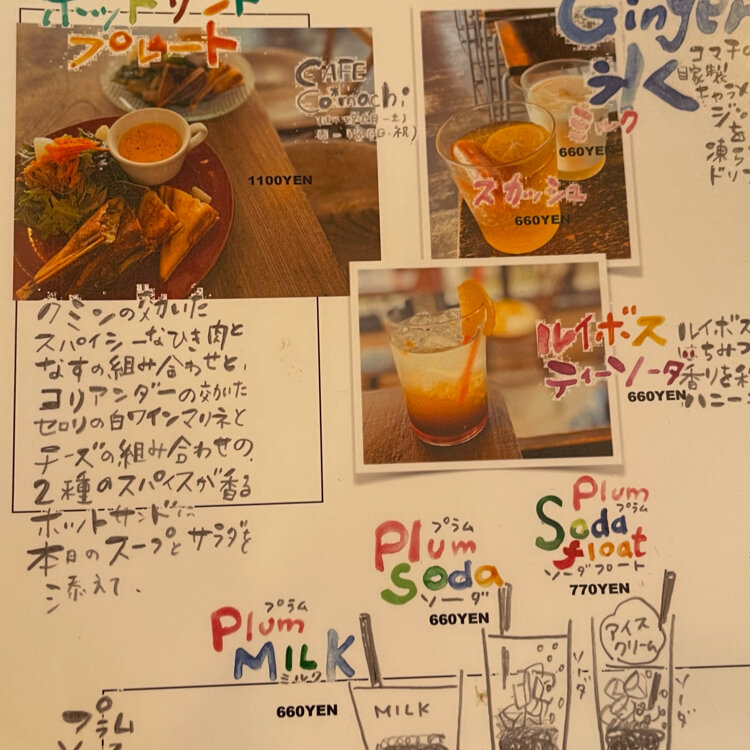 ホットサンド
プレート
CAFE
Comachi
1100YEN
クミンの効いた
スパイシーなひき肉と
なすの組み合わせと、
コリアンダーの効かた
セロリの白ワインマリネと
チーズの組み合わせの、
2種のスパイスが香る
ホットサンドに
本日のスープとサラダを
添えて、
Ginger
氷く
ミルク
660YEN
スカッシュ
660YEN
コマチの
自家製
キャラメ
ジン
を
凍ら
ドリ
ルイボス
ティーソーダ
660YEN
ルイボス
はちみつ
香りを
ハニー
Plum
プラム
Soda
float
ソーダフロート
770YEN
プラム
Plum
Soda
ソーダ
660YEN
プラム
Plum
MILK
ミルク
660YEN
MILK
ソーダ
アイス
クリーム
ソーダ
プラム